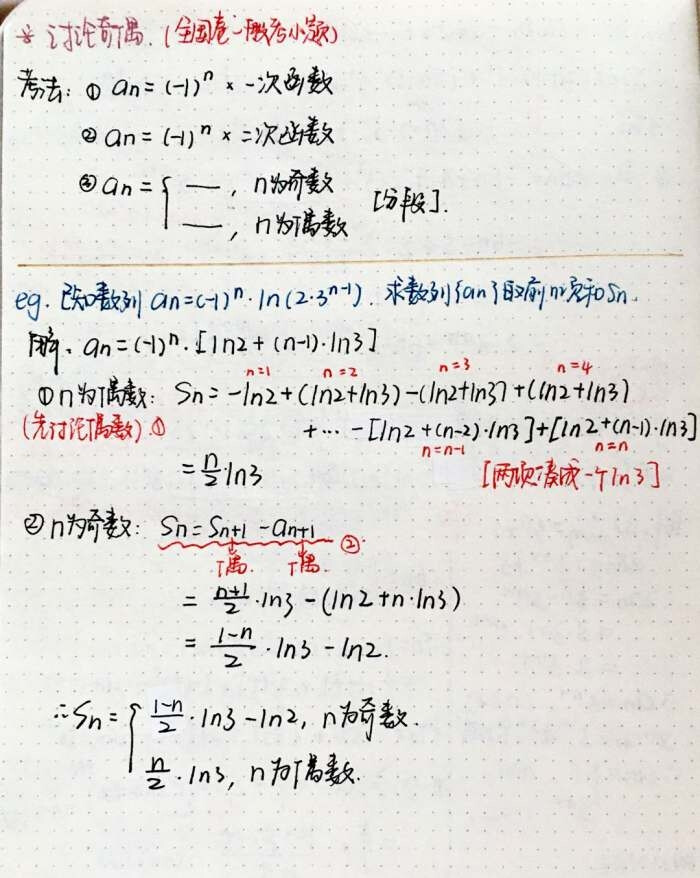 * 讨论奇偶. (全国卷一般考小题)
考法: ① an = (-1)^n × 一次函数
② an = (-1)^n × 二次函数
③ an = { ——, n为奇数
——, n为偶数 [分段].
eg. 已知数列 an = (-1)^n · ln(2·3^{n-1}). 求数列{an}的前n项和Sn.
解. an = (-1)^n · [ln2 + (n-1)·ln3]
n=1 n=2 n=3 n=4
①n为偶数: Sn = -ln2 + (ln2+ln3) - (ln2+ln3) + (ln2+ln3)
(先讨论偶数) ① + ··· - [ln2 + (n-2)·ln3] + [ln2 + (n-1)·ln3]
n=n-1 n=n
= n/2 ln3 [两项凑成一个ln3]
②n为奇数: Sn = Sn+1 - an+1 ②.
偶. 偶.
= (n+1)/2 · ln3 - (ln2 + n·ln3)
= (1-n)/2 · ln3 - ln2.
∴ Sn = { (1-n)/2 · ln3 - ln2, n为奇数.
n/2 · ln3, n为偶数.